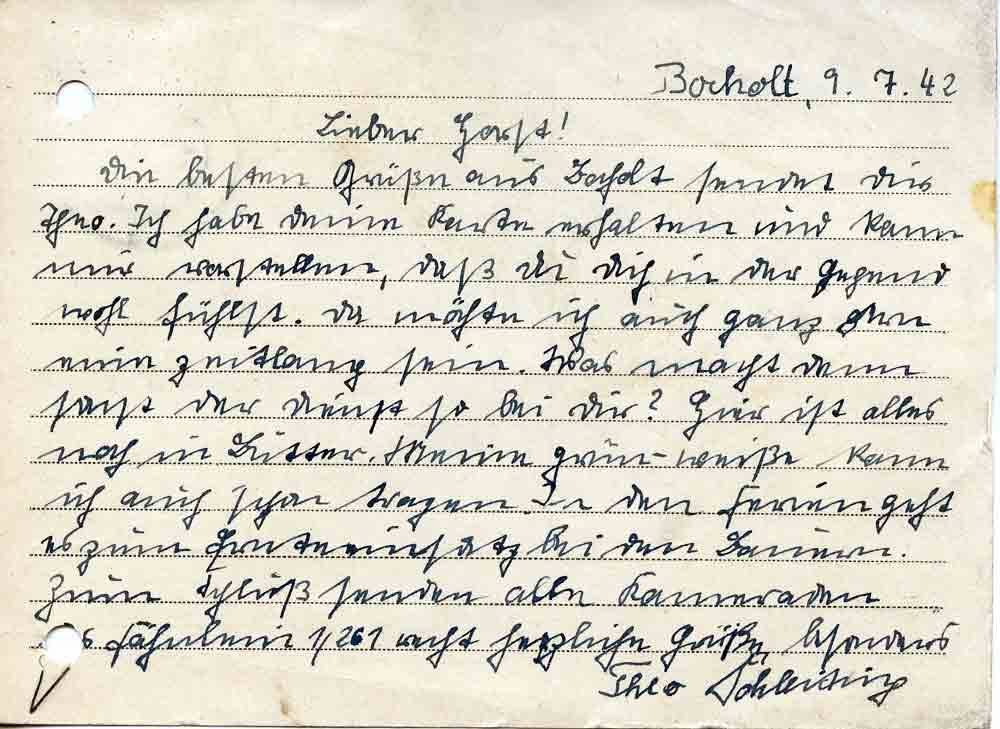 Bocholt, 9. 7. 42
Lieber Horst!
Die besten Grüße aus Bocholt sendet dir
Theo. Ich habe deine Karte erhalten und kann
mir vorstellen, daß du dich in der Gegend
wohl fühlst. Da möchte ich auch ganz gern
eine zeitlang sein. Was macht denn
sonst der Dienst so bei dir? Hier ist alles
noch in Butter. Meine grün-weiße kann
ich auch schon tragen. In den Ferien geht
es zum Ernteeinsatz bei den Bauern.
Zum Schluß senden alle Kameraden
s Fähnlein 1/261 recht herzliche Grüße, besonders
Theo